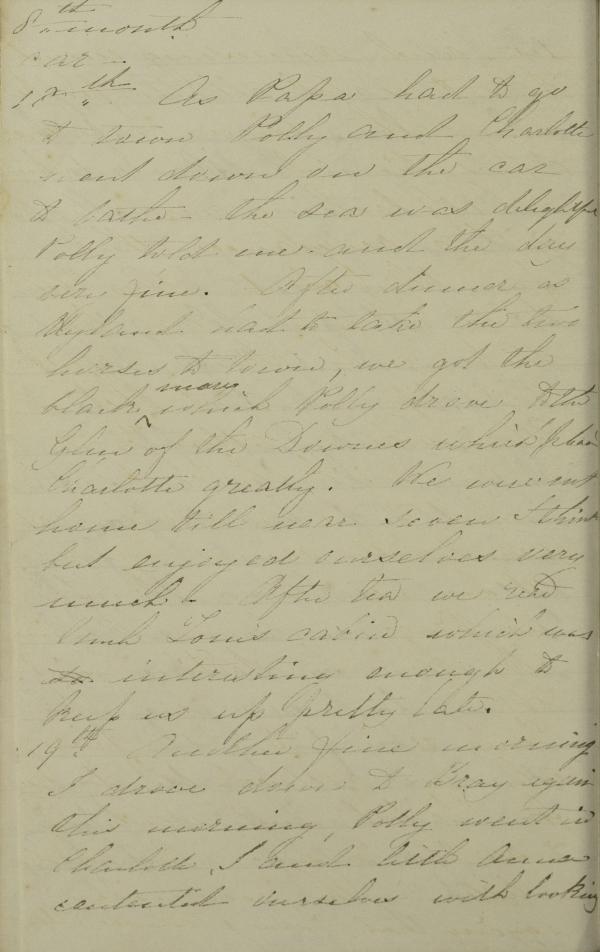 8th month
car -
18th. As Papa had to go
to town Polly and Charlotte
went down on the car
to bathe - the sea was delightful
Polly told me - and the day
very fine. After dinner, as
Hyland had to take the two
horses to town, we got the
black ^ mare which Polly drove to the
Glen of the Downes which pleased
Charlotte greatly. We were not
home till near seven I think
but enjoyed ourselves very
much - After tea we read
Uncle Tom's cabin which was
so interesting enough to
keep us up pretty late.
19th. Another fine morning
I drove down to Bray again
this morning, Polly went in
Charlotte, I and little Anna
contented ourselves with looking